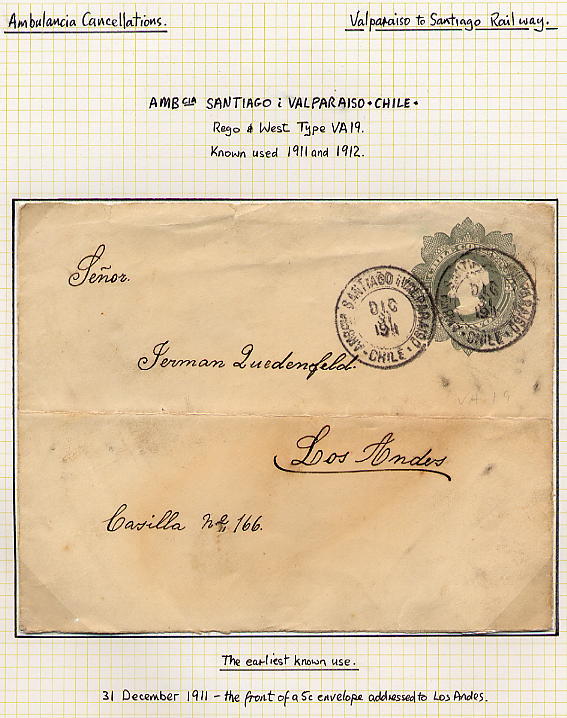 Ambulancia Cancellations.
Valparaiso to Santiago Railway.
AMBCIA SANTIAGO i VALPARAISO • CHILE •
Rego & West Type VA19.
Known used 1911 and 1912.
Señor.
AMBCIA SANTIAGO i VALPARAISO
DIC
31
1911
• CHILE •
DIC
31
1911
• CHILE •
German Quedenfeld.
VA 19
Los Andes
Casilla No 166.
The earliest known use.
31 December 1911 – the front of a 5c envelope addressed to Los Andes.